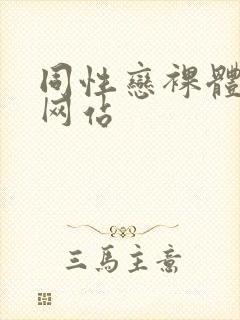 同性戀裸體
网站
三馬主意